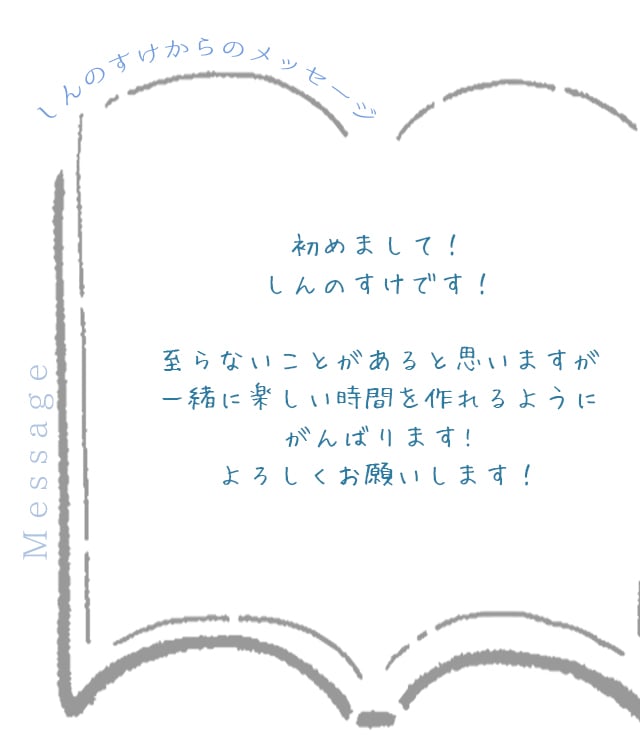 しんのすけからのメッセージ
初めまして！
しんのすけです！
至らないことがあると思いますが
一緒に楽しい時間を作れるように
がんばります!
よろしくお願いします！
Message